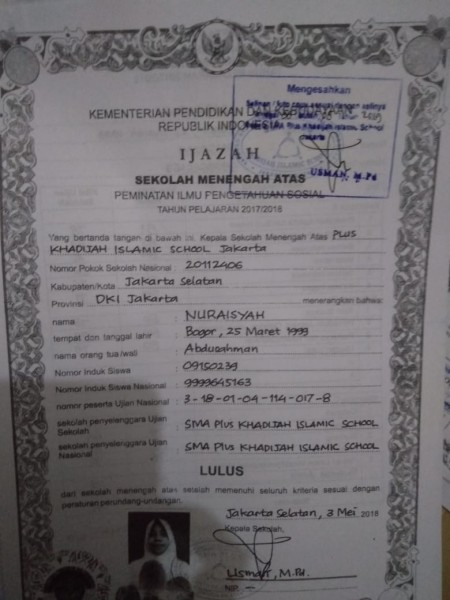 Mengesahkan
KEMENTERIAN PENDIDIKAN DAN KEBUDAYAAN
REPUBLIK INDONESIA
Khadijah Islamic School
Jakarta
USMAN, M.Pd
IJAZAH
SEKOLAH MENENGAH ATAS
PEMINATAN ILMU PENGETAHUAN SOSIAL
TAHUN PELAJARAN 2017/2018
Yang bertanda tangan di bawah ini, Kepala Sekolah Menengah Atas PLUS
KHADIJAH ISLAMIC SCHOOL Jakarta
Nomor Pokok Sekolah Nasional : 20112406
Kabupaten/Kota : Jakarta Selatan
Provinsi DKI Jakarta menerangkan bahwa:
nama : NURAISYAH
tempat dan tanggal lahir : Bogor, 25 Maret 1999
nama orang tua/wali : Abdurahman
Nomor Induk Siswa : 09150239
Nomor Induk Siswa Nasional : 9999645163
nomor peserta Ujian Nasional : 3-18-01-04-114-017-8
sekolah penyelenggara Ujian Sekolah : SMA Plus KHADIJAH ISLAMIC SCHOOL
sekolah penyelenggara Ujian Nasional : SMA Plus KHADIJAH ISLAMIC SCHOOL
LULUS
dari sekolah menengah atas setelah memenuhi seluruh kriteria sesuai dengan
peraturan perundang-undangan.
Jakarta Selatan, 3 Mei 2018
Kepala Sekolah,
Usman, M.Pd.
NIP. —